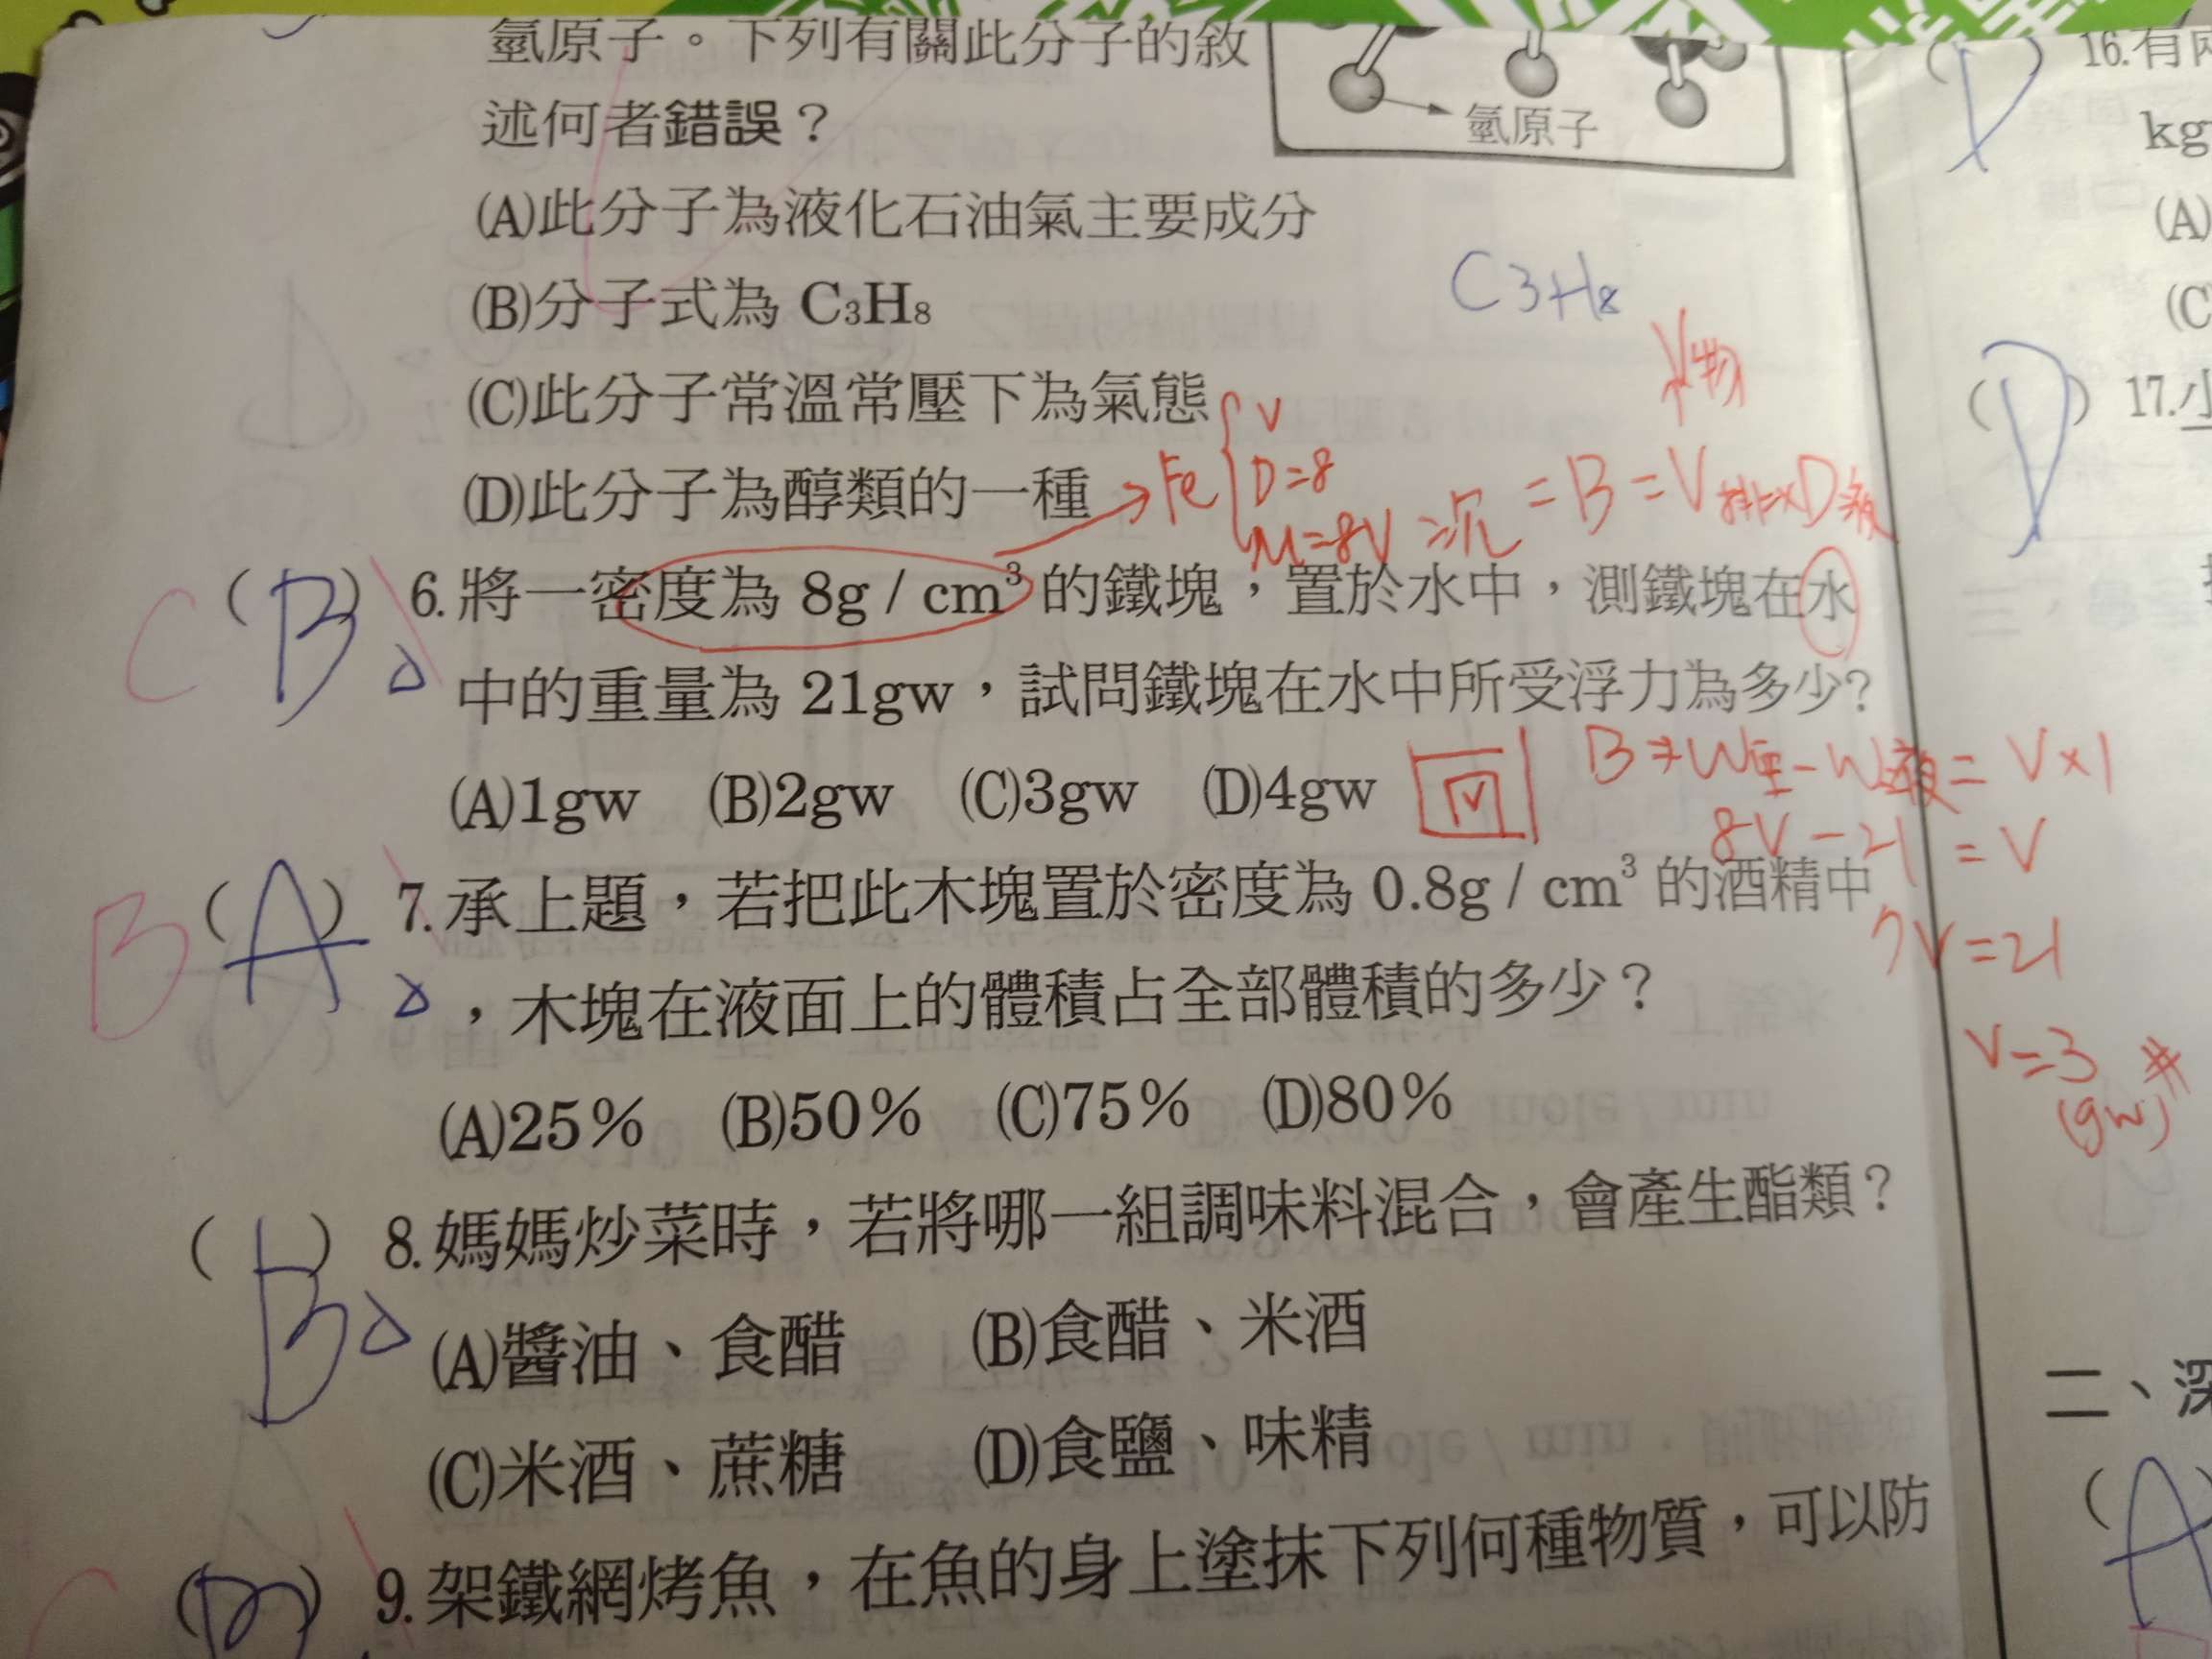 氫原子。下列有關此分子的敘
述何者錯誤？
氫原子
(A)此分子為液化石油氣主要成分
(B)分子式為 C₃H₈
C3H8
(C)此分子常溫常壓下為氣態
(D)此分子為醇類的一種
V物
Fe
V
D=8
M=8V
沉
= B = V排×D液
C
(B)
6.將一密度為 8g / cm³ 的鐵塊，置於水中，測鐵塊在水
中的重量為 21gw，試問鐵塊在水中所受浮力為多少?
(A)1gw (B)2gw (C)3gw (D)4gw
V
W重-W液= V×1
8V-21 = V
7V=21
V=3
(gw)#
B
(A)
7.承上題，若把此木塊置於密度為 0.8g / cm³ 的酒精中
，木塊在液面上的體積占全部體積的多少？
(A)25% (B)50% (C)75% (D)80%
(B)
8.媽媽炒菜時，若將哪一組調味料混合，會產生酯類？
(A)醬油、食醋 (B)食醋、米酒
(C)米酒、蔗糖 (D)食鹽、味精
9.架鐵網烤魚，在魚的身上塗抹下列何種物質，可以防
(D)
16.有
kg
(A)
(C
(D)
17.小
二、深
(A